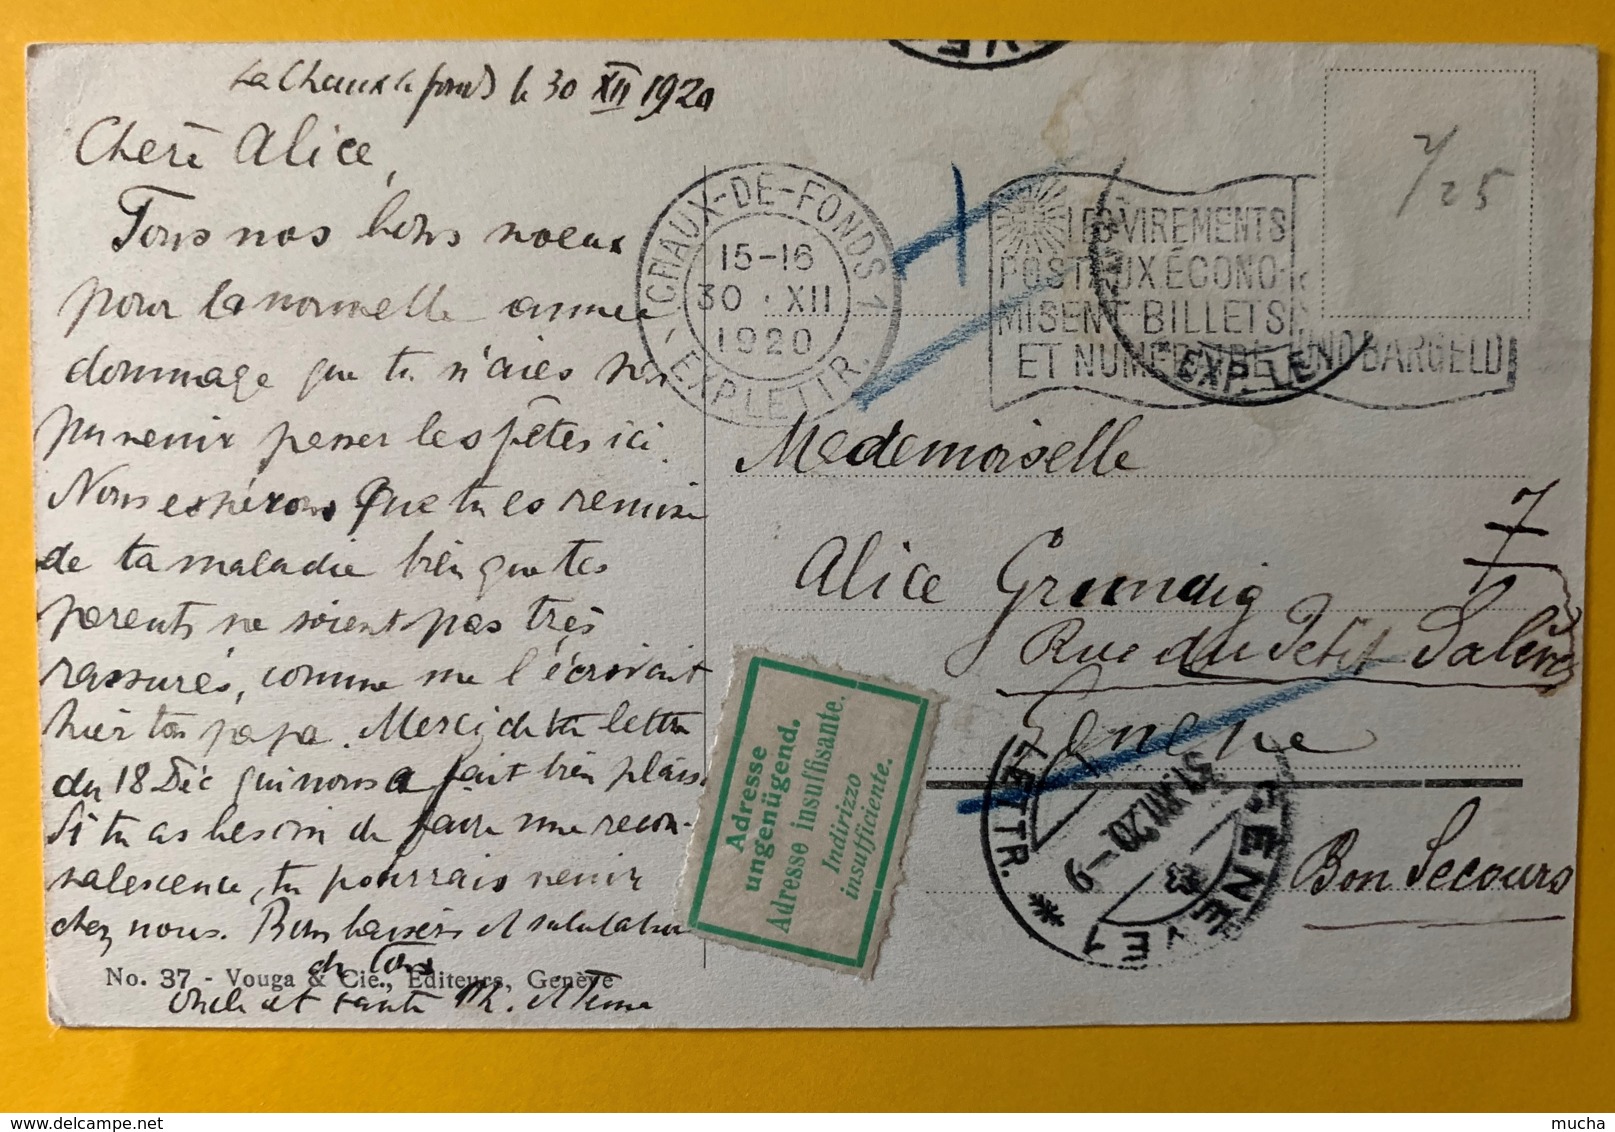 La Chaux de fonds le 30 XII 1920
Chère Alice,
Tous nos bons voeux
pour la nouvelle année
dommage que tu n'aies
pu venir passer les fêtes ici.
Nous espérons que tu es remise
de ta maladie bien que tes
parents ne soient pas très
rassurés, comme me l'écrivait
hier ton papa. Merci de ta lettre
du 18 Déc qui nous a fait bien plais.
Si tu as besoin de faire une recon-
valescence, tu pourrais venir
chez nous. Bons baisers et salutations
de tous
No. 37 - Vouga & Cie., Éditeurs, Genève
Oncle et tante
CHAUX-DE-FONDS 1
15-16
30. XII
1920
- EXP. LETTR. -
LES VIREMENTS
POSTAUX ÉCONO-
MISENT BILLETS
ET NUMÉRAIRE
UND BARGELD
EXP. LE
2/25
Mademoiselle
7
7
Alice Grunaig
Rue du Petit Salève
Genève
Bon Secours
Adresse
ungenügend.
Adresse insuffisante.
Indirizzo
insufficiente.
GENÈVE 1
LETTR.
31.XII.20.-9
mucha
www.delcampe.net